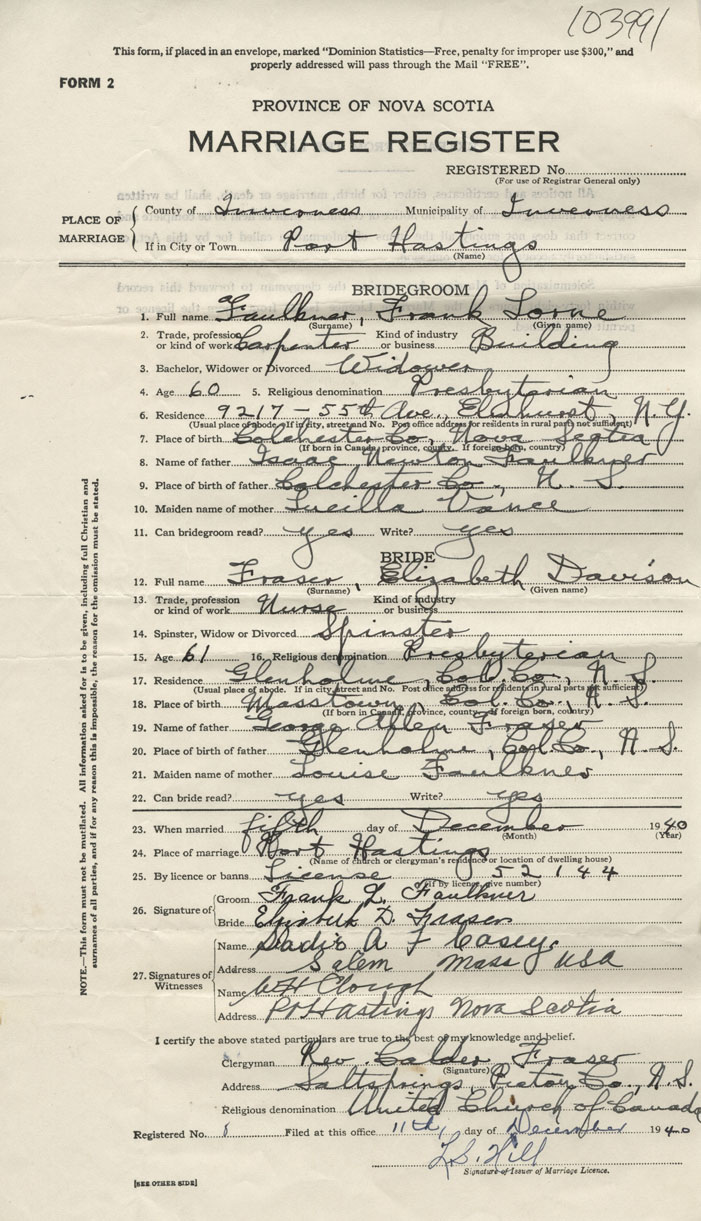 103991
This form, if placed in an envelope, marked "Dominion Statistics—Free, penalty for improper use $300," and
properly addressed will pass through the Mail "FREE".
FORM 2
PROVINCE OF NOVA SCOTIA
MARRIAGE REGISTER
REGISTERED No.
(For use of Registrar General only)
PLACE OF MARRIAGE
County of Inverness Municipality of Inverness
If in City or Town Port Hastings
(Name)
BRIDEGROOM
1. Full name Faulkner, Frank Lorne
(Surname) (Given name)
2. Trade, profession or kind of work Carpenter Kind of industry or business Building
3. Bachelor, Widower or Divorced Widower
4. Age 60 5. Religious denomination Presbyterian
6. Residence 9217 - 55th Ave., Elmhurst, N.Y.
(Usual place of abode. If in city, street and No. Post office address for residents in rural parts not sufficient)
7. Place of birth Colchester Co., Nova Scotia
(If born in Canada, province, county. If foreign born, country)
8. Name of father Isaac Newton Faulkner
9. Place of birth of father Colchester Co., N. S.
10. Maiden name of mother Lucilla Vance
11. Can bridegroom read? yes Write? yes
BRIDE
12. Full name Fraser, Elizabeth Davison
(Surname) (Given name)
13. Trade, profession or kind of work Nurse Kind of industry or business
14. Spinster, Widow or Divorced Spinster
15. Age 61 16. Religious denomination Presbyterian
17. Residence Glenholme, Col. Co., N. S.
(Usual place of abode. If in city, street and No. Post office address for residents in rural parts not sufficient)
18. Place of birth Masstown, Col. Co., N. S.
(If born in Canada, province, county. If foreign born, country)
19. Name of father George Allen Fraser
20. Place of birth of father Glenholme, Col. Co., N. S.
21. Maiden name of mother Louise Faulkner
22. Can bride read? yes Write? yes
23. When married fifth day of December 1940
(Month) (Year)
24. Place of marriage Port Hastings
(Name of church or clergyman's residence or location of dwelling house)
25. By licence or banns License 52144
(If by licence, give number)
26. Signature of
Groom Frank L. Faulkner
Bride Elizabeth D. Fraser
27. Signatures of Witnesses
Name Sadie A F Casey
Address Salem Mass USA
Name W H Clough
Address Pt Hastings Nova Scotia
I certify the above stated particulars are true to the best of my knowledge and belief.
Clergyman Rev. Calder Fraser
(Signature)
Address Saltsprings, Pictou Co., N.S.
Religious denomination United Church of Canada
Registered No. 8 Filed at this office 11th, day of December 1940
L.S. Hill
Signature of Issuer of Marriage Licence.
[SEE OTHER SIDE]
NOTE.—This form must not be mutilated. All information asked for is to be given, including full Christian and
surnames of all parties, and if for any reason this is impossible, the reason for the omission must be stated.